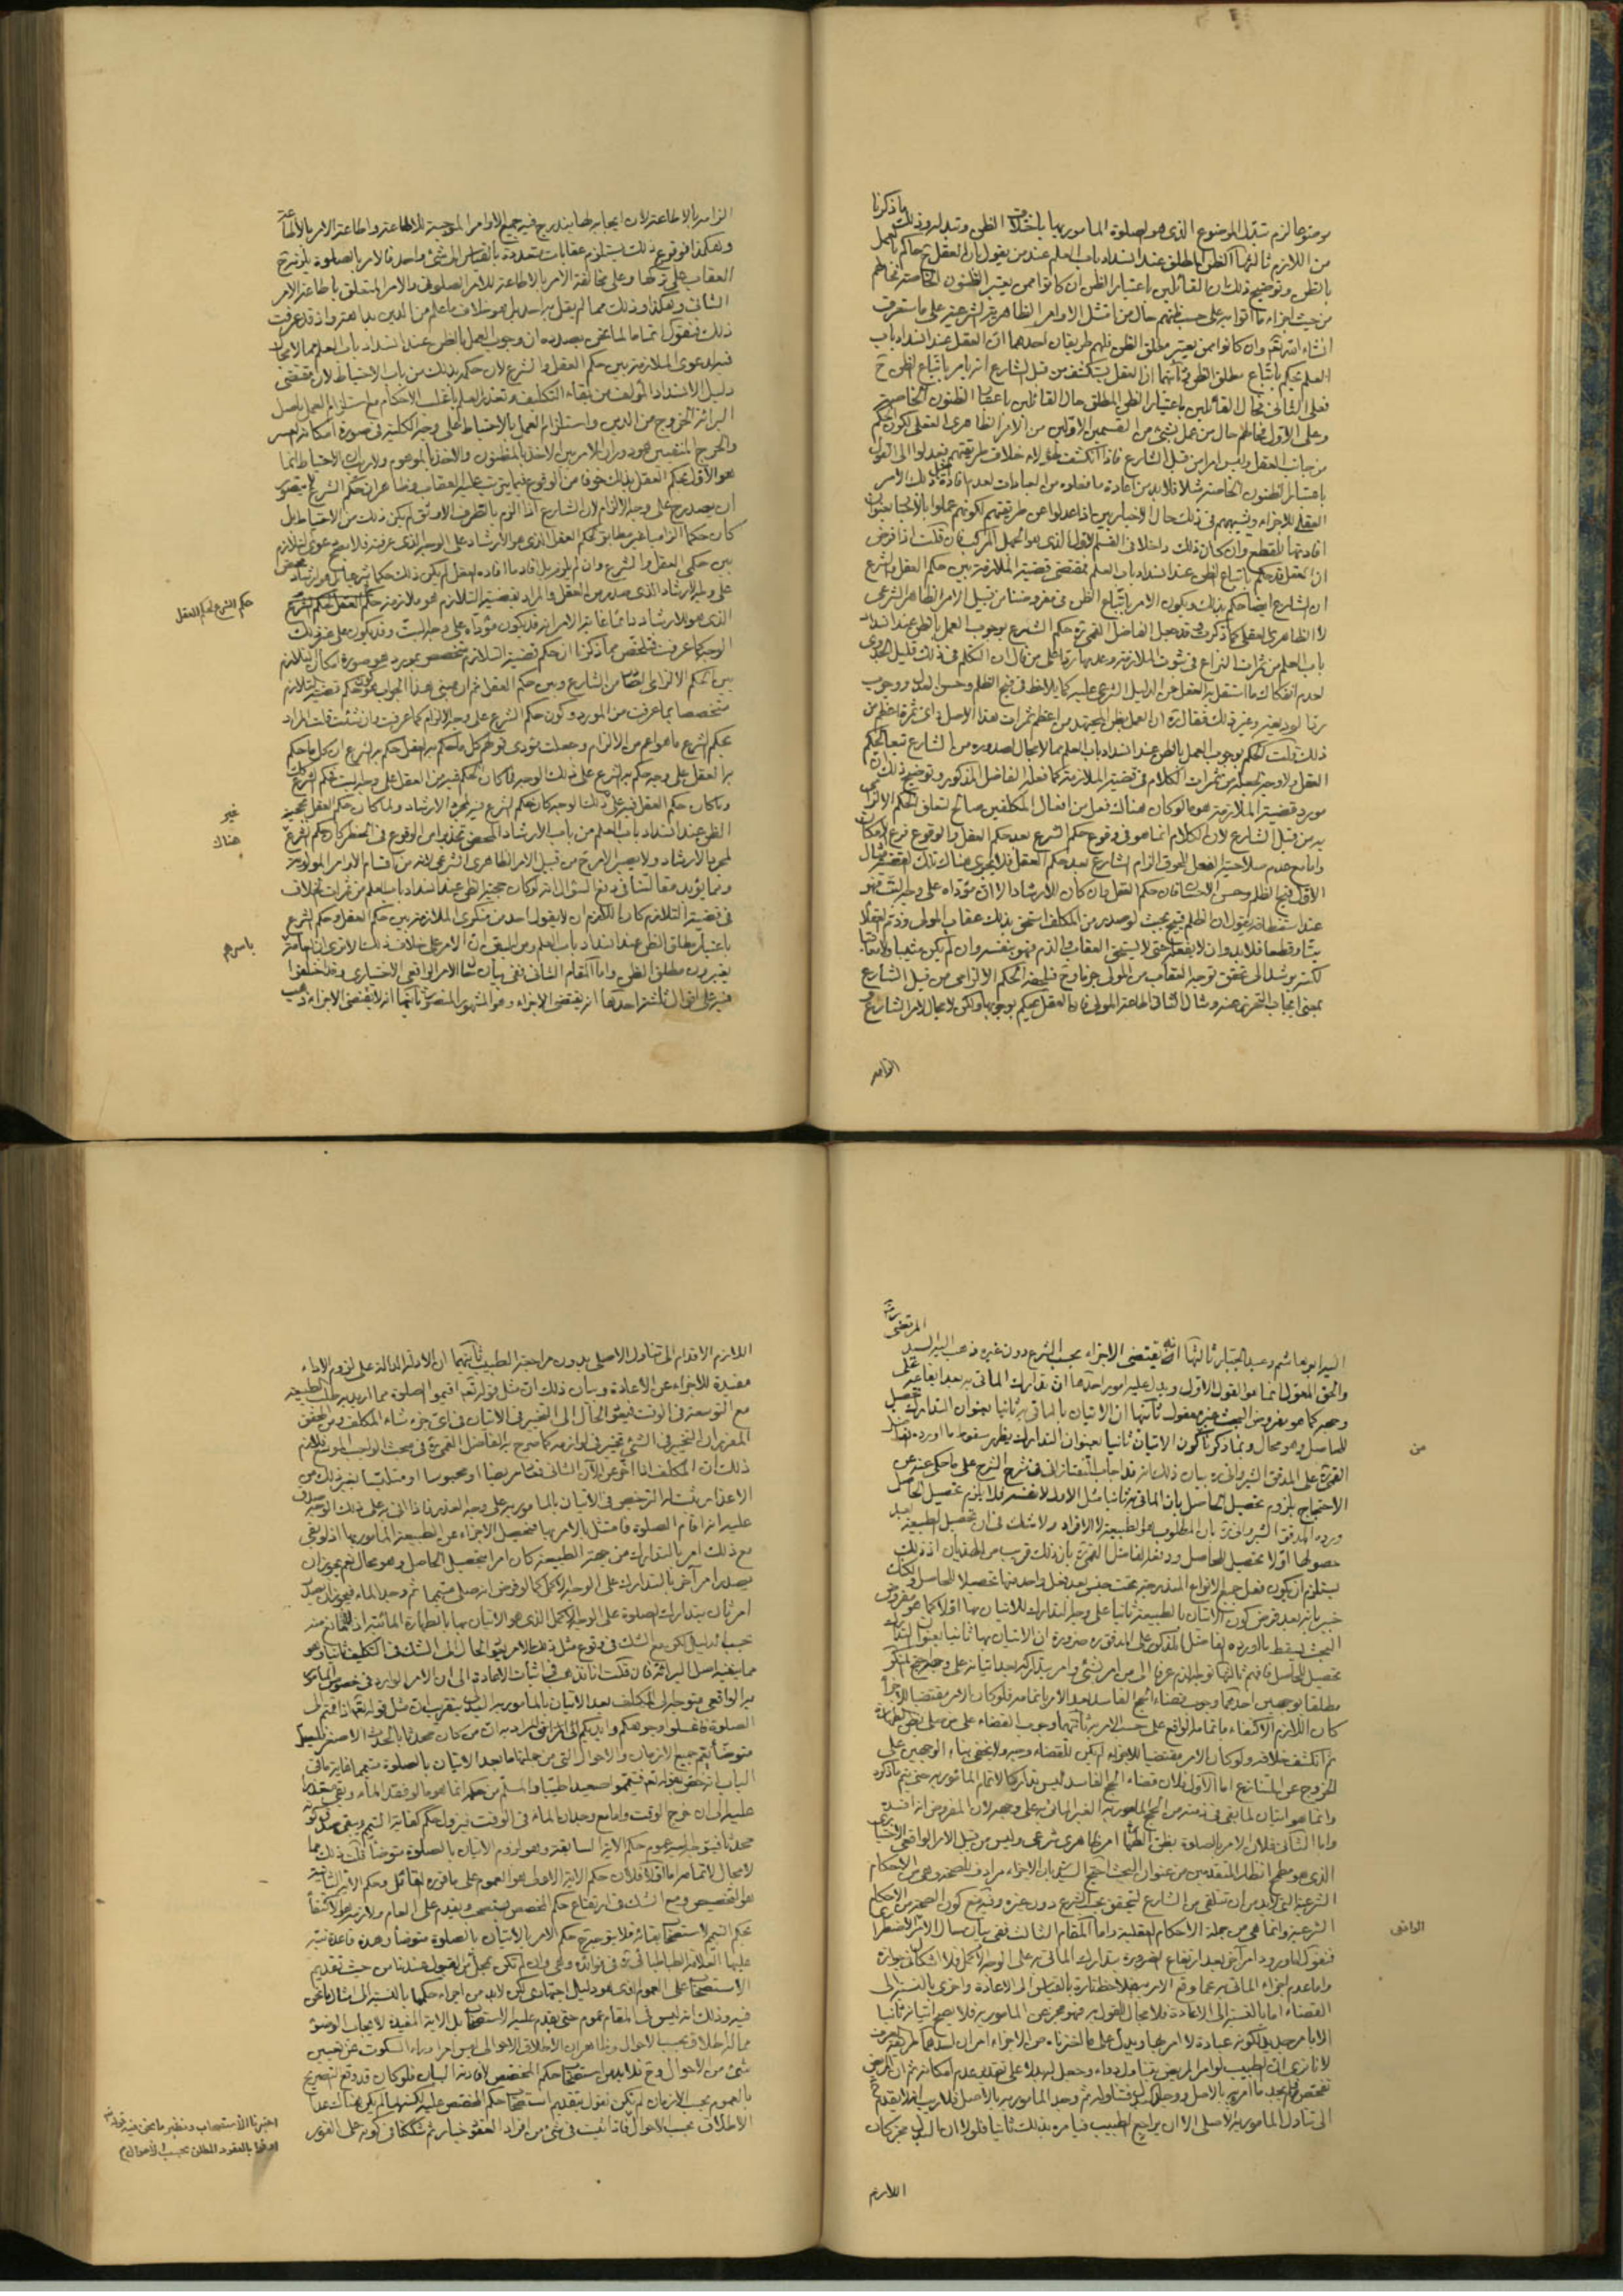 موضوعا لزم تبدل الموضوع الذى هو الصلوة المامور بها باختلاف الظن وتبدله وذلك ما ذكرنا
من اللازم ثالثها الظن المطلق عند انسداد باب العلم عند من يقول بان العقل ح حاكم بالعمل
بالظن وتوضيح ذلك ان القائلين باعتبار الظن ان كانوا ممن يعتبر الظنون الخاصة فحالهم
من حيث اجزاء ما اتوا به على حسب ظنهم حال من امتثل الاوامر الظاهرية الشرعية على ما ستعرف
انشاء الله تعالى وان كانوا ممن يعتبر مطلق الظن فلهم طريقان احدهما ان العقل عند انسداد باب
العلم يحكم باتباع مطلق الظن ثانيهما ان العقل يستكشف من قبل الشارع انه يامر باتباع الظن ح
فعلى الثانى فحال القائلين باعتبار الظن المطلق حال القائلين باعتبار الظنون الخاصة
وعلى الاول فحالهم حال من عمل بشئ من القسمين الاولين من الامر الظاهرى العقلى لكون الحكم
من جانب العقل وليس امرا من قبل الشارع فاذا انكشف لهؤلاء خلاف طريقتهم فعدلوا الى القول
باعتبار الظنون الخاصة مثلا فلابد من اعادة ما فعلوه من العبادات لعدم افادة ذلك الامر
العقلى للاجزاء ويشبههم فى ذلك حال الاخباريين اذا عدلوا عن طريقتهم لكونهم عملوا بالاخبار بعنوان
افادتها للقطع وان كان ذلك داخلا فى القسم الاول الذى هو الجهل المركب فان قلت اذا فرض
ان العقل قد حكم باتباع الظن عند انسداد باب العلم فمقتضى قضية الملازمة بين حكم العقل والشرع
ان الشارع ايضا حكم بذلك ويكون الامر باتباع الظن فى مفروضنا من قبيل الامر الظاهرى الشرعى
لا الظاهرى العقلى كما ذكرت وقد جعل الفاضل القمى ره حكم الشرع بوجوب العمل بالظن عند انسداد
باب العلم من ثمرات النزاع فى ثبوت الملازمة وعدمها ردا على من قال ان التكلم فى ذلك قليل الجدوى
لعدم انفكاك ما استقل به العقل عن الدليل الشرعى عليه كما يلاحظ فى قبح الظلم وحسن العدل ووجوب
رد الوديعة وغير ذلك فقال ره ان العمل بظن المجتهد من اعظم ثمرات هذا الاصل واى ثمرة اعظم من
ذلك قلت الحكم بوجوب العمل بالظن عند انسداد باب العلم مما لا مجال لصدوره من الشارع تبعا لحكم
العقل ولا وجه لجعله من ثمرات الكلام فى قضية الملازمة كما فعله الفاضل المذكور وتوضيح ذلك ان
مورد قضية الملازمة هو ما لو كان هناك فعل من افعال المكلفين صالح لتعلق الحكم الالزامى
به من قبل الشارع لان الكلام انما هو فى وقوع حكم الشرع بعد حكم العقل والوقوع فرع الامكان
واما مع عدم صلاحية الفعل للحوق الزام الشارع بعد حكم العقل فلا يجرى هناك تلك القضية فمثال
الاول قبح الظلم وحسن الاحسان فان حكم العقل وان كان للارشاد الا ان مؤداه على وجه البت فهو
لكنه يرشد الى تحقق توجه العقاب من المولى جزما وح فيلحقه الحكم الالزامى من قبل الشارع
بمعنى ايجاب التحرز عنه ومثال الثانى اطاعة المولى فان العقل يحكم بوجوبها ولكن لا مجال لامر الشارع
الزامه
الزامه بالاطاعة لان ايجابه لها يندرج فيه جميع الاوامر الموجبة للاطاعة واطاعة الامر بالاطاعة
وهكذا فوقوع ذلك يستلزم عقابات متعددة بالقياس الى شئ واحد فالامر بالصلوة يلزم ترتب
العقاب على تركها وعلى مخالفة الامر بالاطاعة للامر الصلوتى والامر المتعلق باطاعة الامر
الثانى وهكذا وذلك مما لم يقل به احد بل هو خلاف ما علم من الدين بداهة واذ قد عرفت
ذلك فنقول اتماما لما نحن بصدده ان وجوب العمل بالظن عند انسداد باب العلم مما لا مجال
فيه لدعوى الملازمة بين حكم العقل والشرع لان حكمه بذلك من باب الاحتياط لان مقتضى
دليل الانسداد المؤلف من بقاء التكليف وتعذر العلم باغلب الاحكام مع استلزام العمل باصل
البرائة الخروج من الدين واستلزام العمل بالاحتياط على وجه الكلية فى صورة امكانه العسر
والحرج المنفيين هو دوران الامر بين الاخذ بالمظنون والاخذ بالموهوم ولا ريب ان الاحتياط انما
هو الاول فحكم العقل بذلك خوفا من الوقوع فيما يترتب عليه العقاب وظاهر ان حكم الشرع لا يتصور
ان يصدر ح على وجه الالزام لان الشارع اذا الزم بالطرف الاوثق لم يكن ذلك من الاحتياط بل
كان حكما الزاميا غير مطابق لحكم العقل الذى هو الارشاد على الوجه الذى عرفته فلا يصح دعوى التلازم
بين حكمى العقل والشرع وان لم يلزم بل افاد ما افاده العقل لم يكن ذلك حكما شرعيا بل هو ارشاد محض
على وجه الارشاد الذى صدر من العقل والمراد بقضية التلازم هو ملازمة حكم العقل لحكم الشرع
حكم الشرع لحكم العقل
الوجه كما عرفت فتلخص مما ذكرنا ان حكم قضية التلازم متخصص بمورد هو صورة امكان التلازم
متخصصا بما عرفت من المورد وكون حكم الشرع على وجه الالزام كما عرفت وان شئت قلت المراد
بحكم الشرع ما هو اعم من الالزام وجعلت مؤدى قولهم كل ما حكم به العقل حكم به الشرع ان كل ما حكم
به العقل على وجه حكم به الشرع على ذلك الوجه فما كان الحكم فيه من العقل على وجه البت فحكم الشرع كذلك
وما كان حكم العقل فيه على ذلك الوجه كان حكم الشرع فيه لمجرد الارشاد ولما كان حكم العقل بحجية
غير
هناك
لمجرد الارشاد ولا يصير الامر ح من قبيل الامر الظاهرى الشرعى لانه من اقسام الاوامر المولوية
ومما يؤيد مقالتنا فى دفع السؤال انه لو كان حجية الظن عند انسداد باب العلم من ثمرات الخلاف
فى قضية التلازم كان اللازم ان لا يقول احد من منكرى الملازمة بين حكم العقل وحكم الشرع
باعتبار مطلق الظن عند انسداد باب العلم ومن المحقق ان الامر على خلاف ذلك الا ترى ان العامة
باسرهم
يعتبرون مطلق الظن واما المقام الثانى ففى بيان شان الامر الواقعى الاختيارى وقد اختلفوا
فيه على اقوال ثلثة احدها انه يقتضى الاجزاء وهو المشهور المنصور ثانيها انه لا يقتضى الاجزاء ذهب
اليه ابو هاشم وعبد الجبار ثالثها انه يقتضى الاجزاء بحسب الشرع دون غيره ذهب اليه السيد المرتضى ره
والحق المعول انما هو القول الاول ويدل عليه امور احدها ان تدارك الماتى به بعد ايقاعه على
وجهه كما هو مفروض البحث غير معقول ثانيها ان الاتيان بالماتى به ثانيا بعنوان التدارك تحصيل
للحاصل وهو محال ومما ذكرنا من كون الاتيان ثانيا بعنوان التدارك يظهر سقوط ما اورده الفاضل
من
القمى ره على المدقق الشيروانى ره بيان ذلك انه قد اجاب التفتازانى فى شرح الشرح على ما حكى عنه عن
الاحتجاج بلزوم تحصيل الحاصل بان الماتى به ثانيا مثل الاول لا نفسه فلا يلزم تحصيل الحاصل
ورده المدقق الشيروانى ره بان المطلوب هو الطبيعة لا الافراد ولا شك فى ان تحصيل الطبيعة بعد
حصولها اولا تحصيل للحاصل ودفعه الفاضل القمى ره بان ذلك قريب من الهذيان اذ ذلك
يستلزم ان يكون فعل جميع الانواع المندرجة تحت جنس بعد فعل واحد منها تحصيلا للحاصل ولكنك
خبير بانه بعد فرض كون الاتيان بالطبيعة ثانيا على وجه التدارك للاتيان بها اولا كما هو مفروض
البحث يسقط ما اورده الفاضل المذكور على المدقق ره ضرورة ان الاتيان بها ثانيا بعنوان التدارك
مطلقا بوجهين احدهما وجوب قضاء الحج الفاسد بعد الامر باتمامه فلو كان الامر مقتضيا للاجزاء
كان اللازم الاكتفاء باتمام الواقع على حسب الامر به ثانيهما وجوب القضاء على من صلى بظن الطهارة
ثم انكشف خلافه ولو كان الامر مقتضيا للاجزاء لم يكن للقضاء وجه ولا يخفى بناء الوجهين على
الخروج عن المتنازع اما الاول فلان قضاء الحج الفاسد ليس تداركا لاتمام المامور به حتى يتم ما ذكره
وانما هو اتيان لما بقى فى ذمته من الحج المامور به الغير الماتى به على وجهه لان المفروض انه افسده
واما الثانى فلان الامر بالصلوة بظن الطهارة امر ظاهرى شرعى وليس من قبيل الامر الواقعى الاختيارى
الذى هو مطمح انظار المتقدمين من عنوان البحث احتج السيد بان الاجزاء مرادف للصحة وهى من الاحكام
الشرعية التى لابد من ان تتلقى من الشارع فيتحقق بحسب الشرع دون غيره ويدفع كون الصحة من الاحكام
الشرعية وانما هى من جملة الاحكام العقلية واما المقام الثالث ففى بيان حال الامر الاضطرارى
الواقعى
فنقول لو ورد امر آخر بعد ارتفاع الضرورة بتدارك الماتى به على الوجه الاكمل فلا اشكال فى جوازه
واما عدم اجزاء الماتى به عما وقع الامر به فيلاحظ تارة بالقياس الى الاعادة واخرى بالنسبة الى
القضاء اما بالنسبة الى الاعادة فلا مجال للقول به فهو مجز عن المامور به فلا يصح اتيانه ثانيا
الا بامر جديد لكونه عبادة لا امر بها ويدل على ما اخترناه من الاجزاء امران احدهما طريقة العرف
الى تناول المامور به الاصلى الا ان يراجع الطبيب فيامره بذلك ثانيا فلولا ان البدل مجز كان
اللازم
اللازم الاقدام الى تناول الاصلى بدون مراجعة الطبيب ثانيهما ان الادلة الدالة على لزوم الاداء
مفيدة للاجزاء عن الاعادة وبيان ذلك ان مثل قوله تعالى اقيموا الصلوة مما اريد به طلب الطبيعة
مع التوسعة فى الوقت فيعود الحال الى التخيير فى الاتيان فى اى جزء شاء المكلف ومن المحقق
المقرر ان التخيير فى الشئ تخيير فى لوازمه كما صرح به الفاضل القمى ره فى مبحث الواجب الموسع فلازم
ذلك ان المكلف اذا اخر عن الآن الثانى فصار مريضا او محبوسا او متلبسا بغير ذلك من
الاعذار يتناوله الترخيص فى الاتيان بالمامور به على وجه العذر فاذا اتى به على ذلك الوجه صدق
عليه انه اقام الصلوة فامتثل بالامر بها فيحصل الاجزاء عن الطبيعة المامور بها اذ لو بقى
مع ذلك امر بالتدارك من جهة الطبيعة كان امرا بتحصيل الحاصل وهو محال نعم يجوز ان
يصدر امر آخر بالتدارك على الوجه الاكمل كما لو فرض انه صلى متيمما ثم وجد الماء فيجوز ان يصدر
امر ثان بتدارك الصلوة على الوجه الاكمل الذى هو الاتيان بها بالطهارة المائية اذ لا مانع منه
مما ينفيه اصل البرائة فان قلت انا نذهب فى اثبات الاعادة الى ان الامر الوارد فى خصوص المامور
به الواقعى متوجه الى المكلف بعد الاتيان بالمامور به البدلى بتقريب ان مثل قوله تعالى اذا قمتم الى
الصلوة فاغسلوا وجوهكم وايديكم الى المرافق المراد به ان من كان محدثا بالحدث الاصغر فليصل
متوضأ يعم جميع الازمان والاحوال التى من جملتها ما بعد الاتيان بالصلوة متيمما فغاية ما فى
الباب انه خص بقوله تعالى فتيمموا صعيدا طيبا والمسلم من حكمه انما هو ما لو فقد الماء وبقى فقده
عليه الى ان خرج الوقت واما مع وجدان الماء فى الوقت فيزول حكم كفاية التيمم ويبقى مثل كونه
محدثا فيتوجه اليه عموم حكم الاية السابقة وهو لزوم الاتيان بالصلوة متوضأ قلت ذلك مما
لا مجال لاتمامه اما اولا فلان حكم الاية الاولى هو العموم على ما قرره القائل وحكم الاية الثانية
هو التخصيص ومع الشك فى ارتفاع حكم المخصص يستصحب ويقدم على العام ولازمه هو الاكتفاء
بحكم التيمم لاستصحاب بقائه فلا يتوجه ح حكم الامر بالاتيان بالصلوة متوضأ وهذه قاعدة نبه
عليها العلامة الطباطبائى ره فى فوائده وهى وان لم تكن بمحل من القبول عندنا من حيث تقديم
الاستصحاب على العموم الذى هو دليل اجتهادى لكن لابد من اجراء حكمها بالنسبة الى مثل ما نحن
فيه وذلك انه ليس فى المقام عموم حتى يقدم عليه الاستصحاب بل الاية المفيدة لايجاب الوضوء
مما له اطلاق بحسب الاحوال وظاهر ان الاطلاق الاحوالى ليس امرا وراء السكوت عن تعيين
شئ من الاحوال وح فلابد من استصحاب حكم المخصص لافادته البيان فلو كان قد وقع التصريح
بالعموم بحسب الازمان لم يكن نقول بتقديم استصحاب حكم المخصص عليه لكنه لما لم يكن هناك عدا
الاطلاق بحسب الاحوال
اعتبرنا الاستصحاب ونظير ما نحن فيه قوله تعالى
اوفوا بالعقود المطلق بحسب الاحوال
فاذا ثبت فى شئ من افراد العقود خيار ثم شككنا فى كونه على الفور